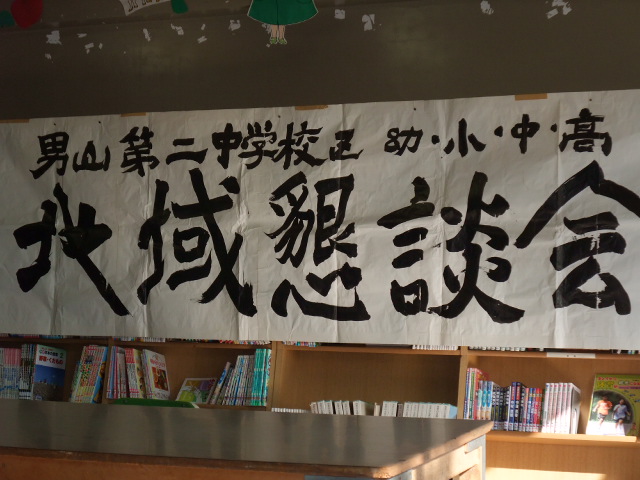 男山第二中学校区 幼・小・中・高
地域懇談会